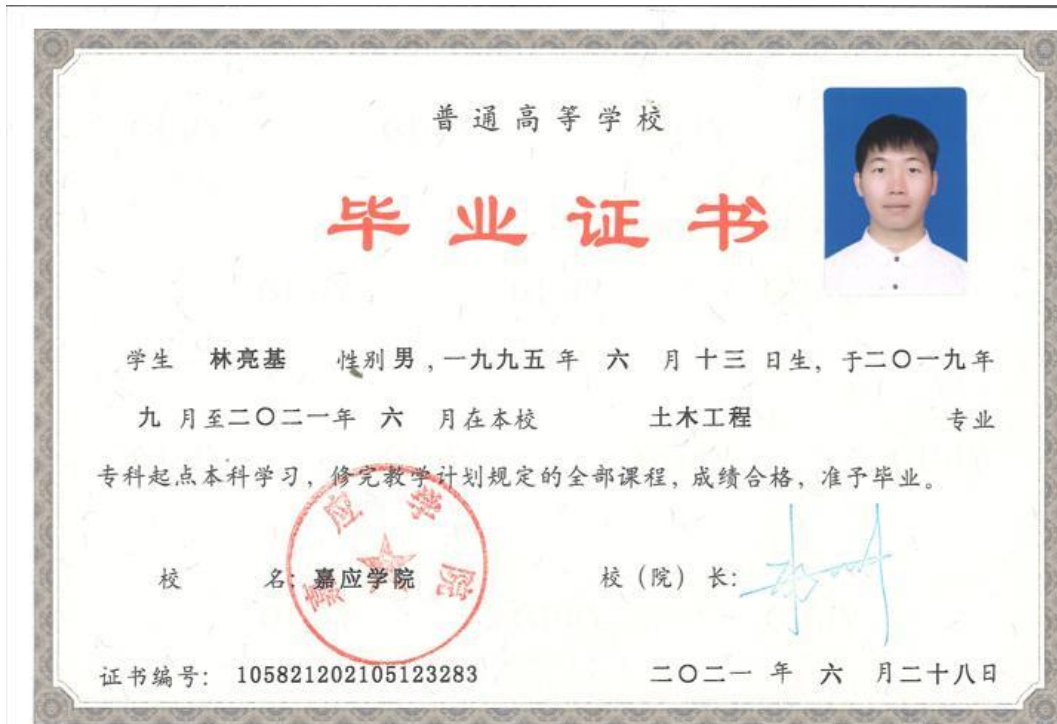 普通高等学校
毕业证书
学生 林亮基 性别 男，一九九五 年 六 月 十三 日生，于二〇一九年
九 月至二〇二一年 六 月在本校 土木工程 专业
专科起点本科学习，修完教学计划规定的全部课程，成绩合格，准予毕业。
嘉应学院
校 名：嘉应学院 校（院）长：
证书编号：105821202105123283 二〇二一 年 六 月二十八日